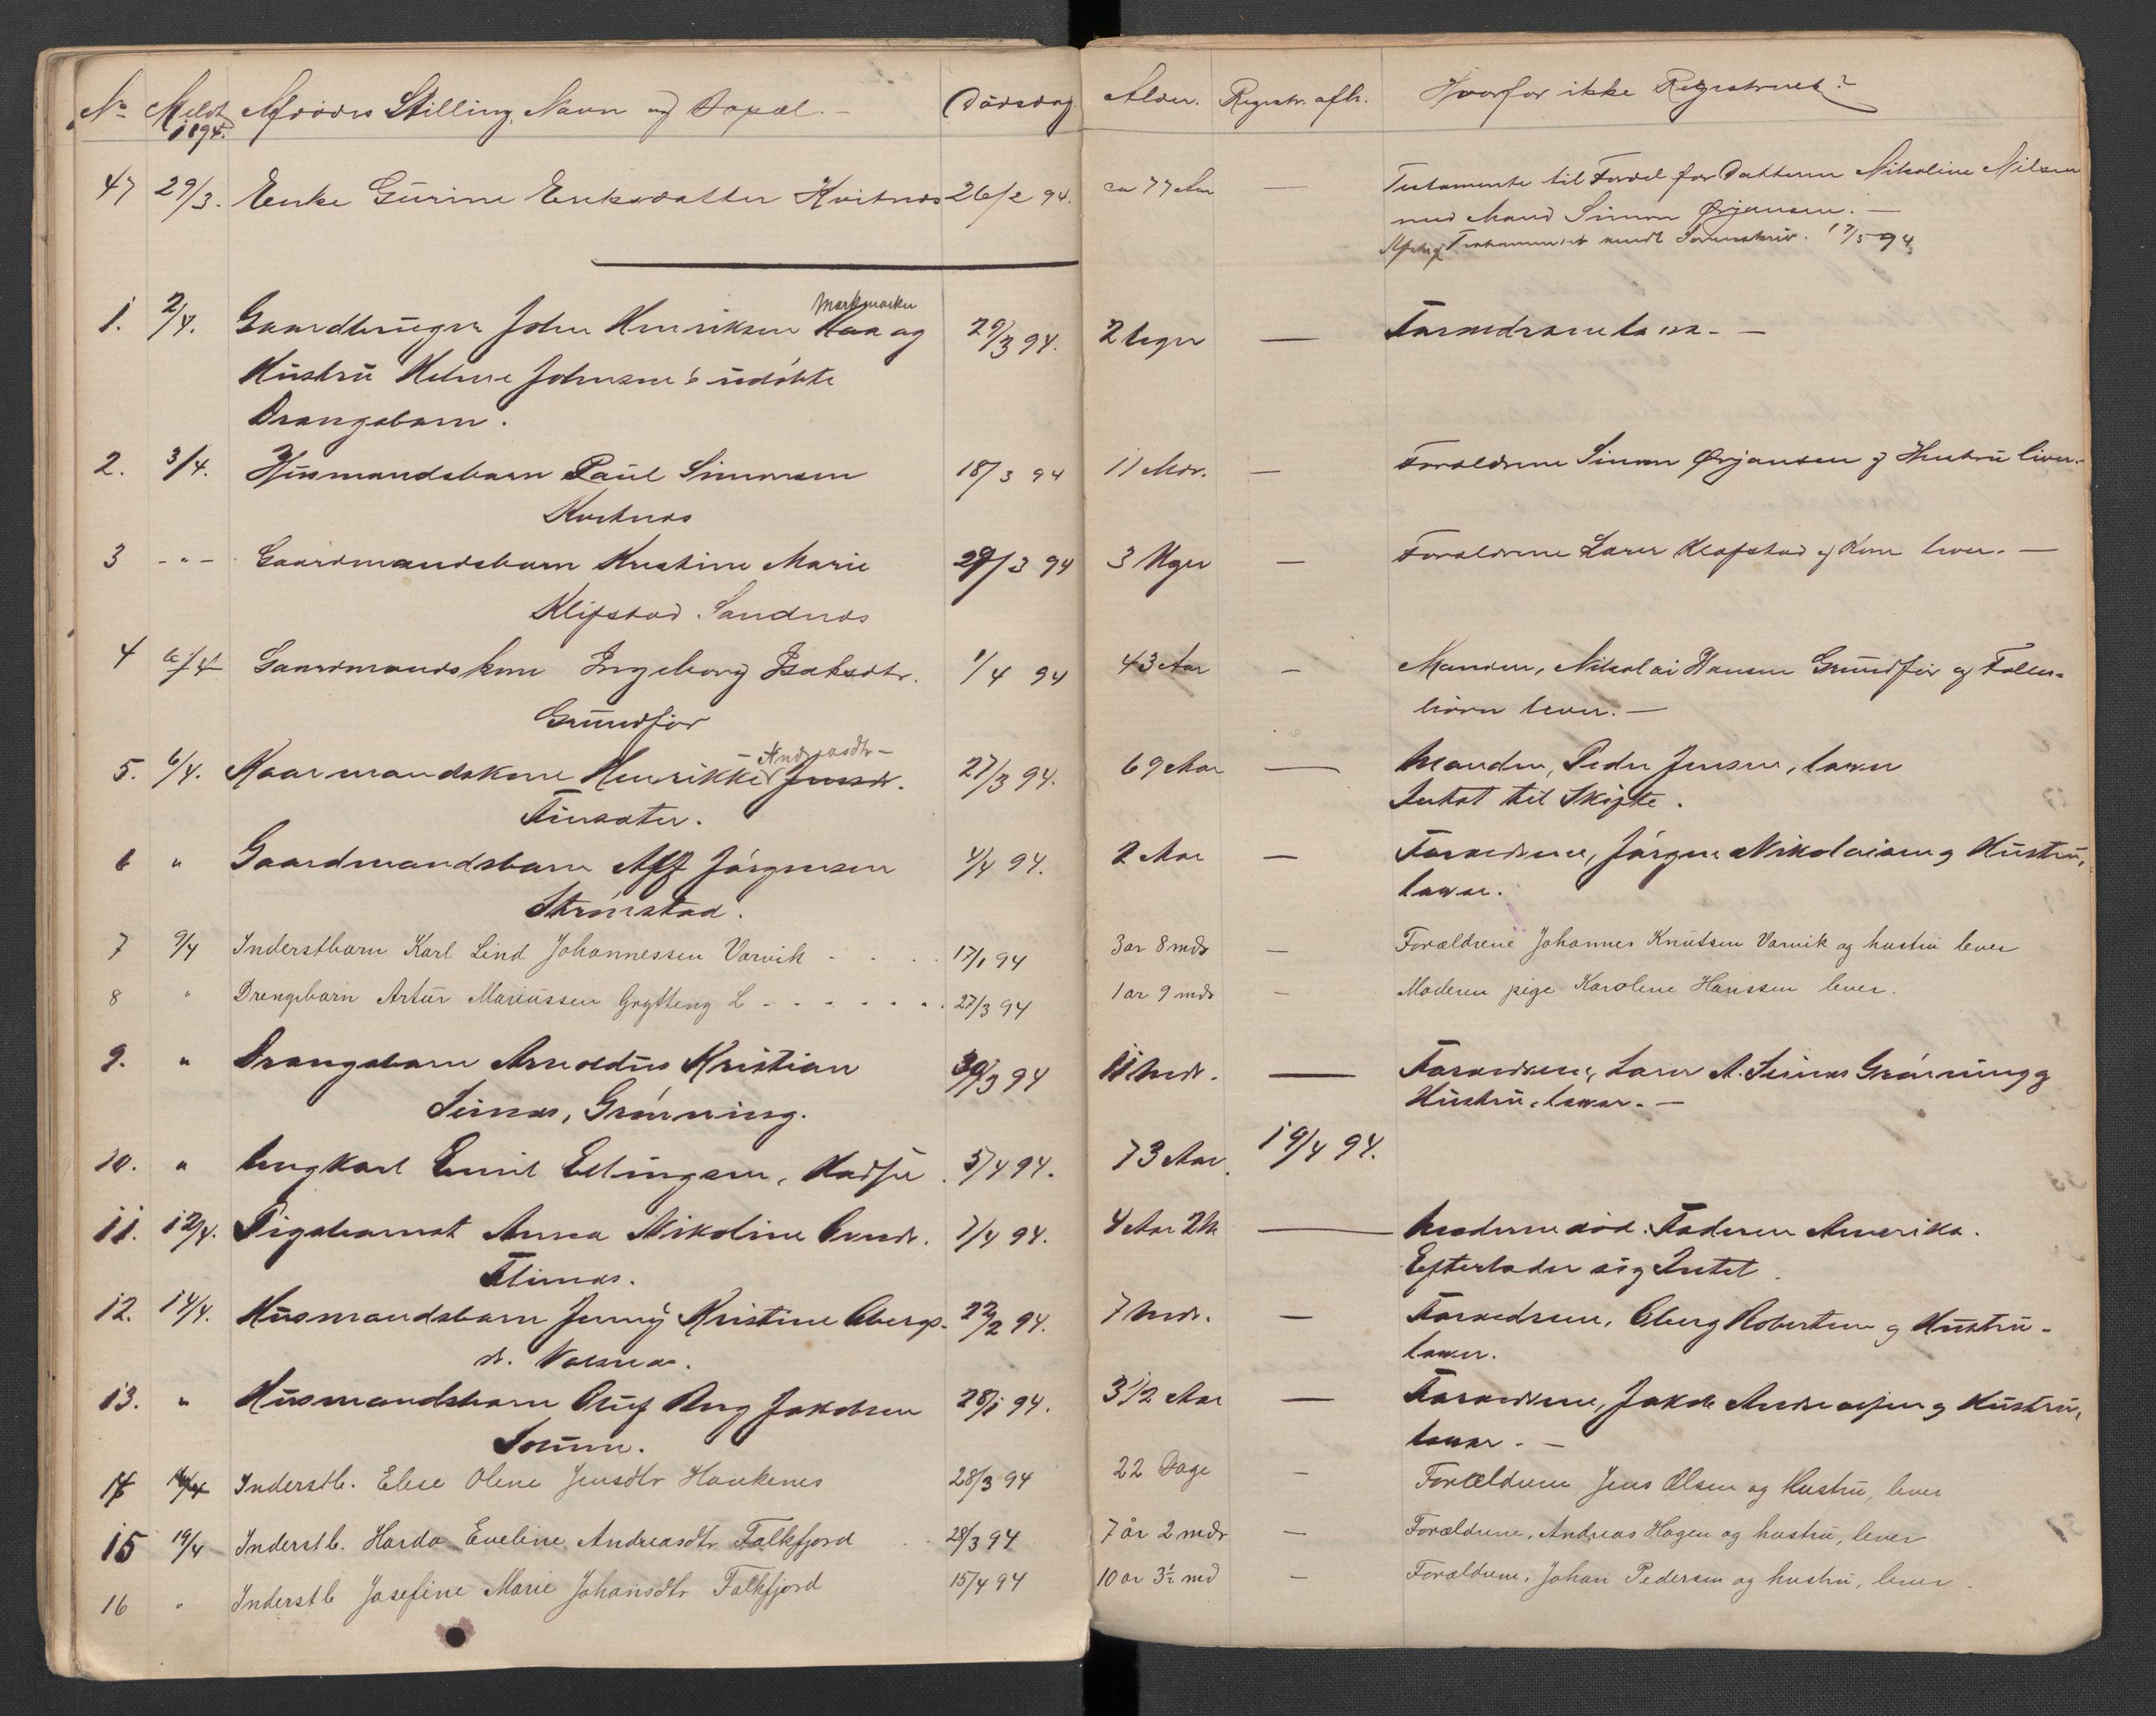 No Meldt 1894. Afdødes Stilling, Navn og Bopæl. Dødsdag. Alder. Registr. afh. Hvorfor ikke Registreret?
47 29/3. Enke Gurine Eriksdatter Kvitnes 26/2 94. ca 77 Aar — Testamente til Fordel for Datteren Nikoline Nilsen
med Mand Simon Ørjansen. —
Testamentet sendt Sorenskriv. 17/5 94
Markmarken
1. 2/4. Gaardbruger John Henriksen og 29/3 94. 2 Uger — Forældrene leve. —
Hustru Johnsen's udøbte
Drengebarn.
2. 3/4. Husmandsbarn Paul Simonsen 18/3 94 11 Mdr. — Forældrene Simon Ørjansen og Hustru lever.
Kvitnes
3 -"- Gaardmandsbarn Kristine Marie 29/3 94 3 Uger — Forældrene Lars Klefstad og Kone lever. —
Klefstad Sandnes
4 6/4 Gaardmandskone Ingeborg Isaksdtr. 1/4 94 43 Aar — Manden, Nikolai Hansen Grundfør og Fælles-
Grundfør
børn lever. —
Andreasdtr —
5. 6/4. Kaarmandskone Henrikke Jensdr. 27/3 94. 69 Aar — Manden, Peder Jensen, lever
Finsæter.
Intet til Skifte.
6 " Gaardmandsbarn Alf Jørgensen 4/4 94. 2 Aar — Forældrene, Jørgen Nikolaisen og Hustru,
Strømstad.
lever.
7 9/4 Inderstbarn Karl Lind Johannessen Varvik 17/1 94 3 ar 8 mdr — Forældrene Johannes Knutsen Varvik og hustru lever
8 " Drengebarn Artur Mariussen Grytting L 27/3 94 1 ar 9 mdr — Moderen pige Karolene Hanssen lever.
9. " Drengebarn Arnoldus Kristian 30/3 94 11 Mdr. — Forældrene, Lars A. Steinnes Grønning og
Grønning.
Hustru, lever. —
10. " Ungkarl Emil Ellingsen, Hadsel 5/4 94. 73 Aar. 19/4 94.
11. 12/4. Pigebarnet Anna Nikoline 7/4 94. 4 Aar 2 M — Moderen død. Faderen Amerika.
Flimas.
Efterlader sig Intet.
12. 14/4. Husmandsbarn Jenny Kristine Obergs- 22/2 94. 7 Mdr. — Forældrene, Oberg Robertsen og Hustru
dr.
lever.
13. " Husmandsbarn Oluf Jakobsen 28/1 94. 3 1/2 Aar — Forældrene, Jakob Andreassen og Hustru,
lever. —
14 14/4 Inderstb. Elese Olene Jensdtr Haukenes 28/3 94 22 Dage — Forældrene Jens Olsen og Hustru, lever
15 19/4 Inderstb. Harda Eveline Andreasdtr Falkfjord 28/3 94 7 år 2 mdr — Forældrene, Andreas Hagen og hustru, lever
16 " Inderstb Josefine Marie Johansdtr Falkfjord 15/4 94 10 ar 3½ md — Forældrene, Johan Pedersen og hustru, lever.